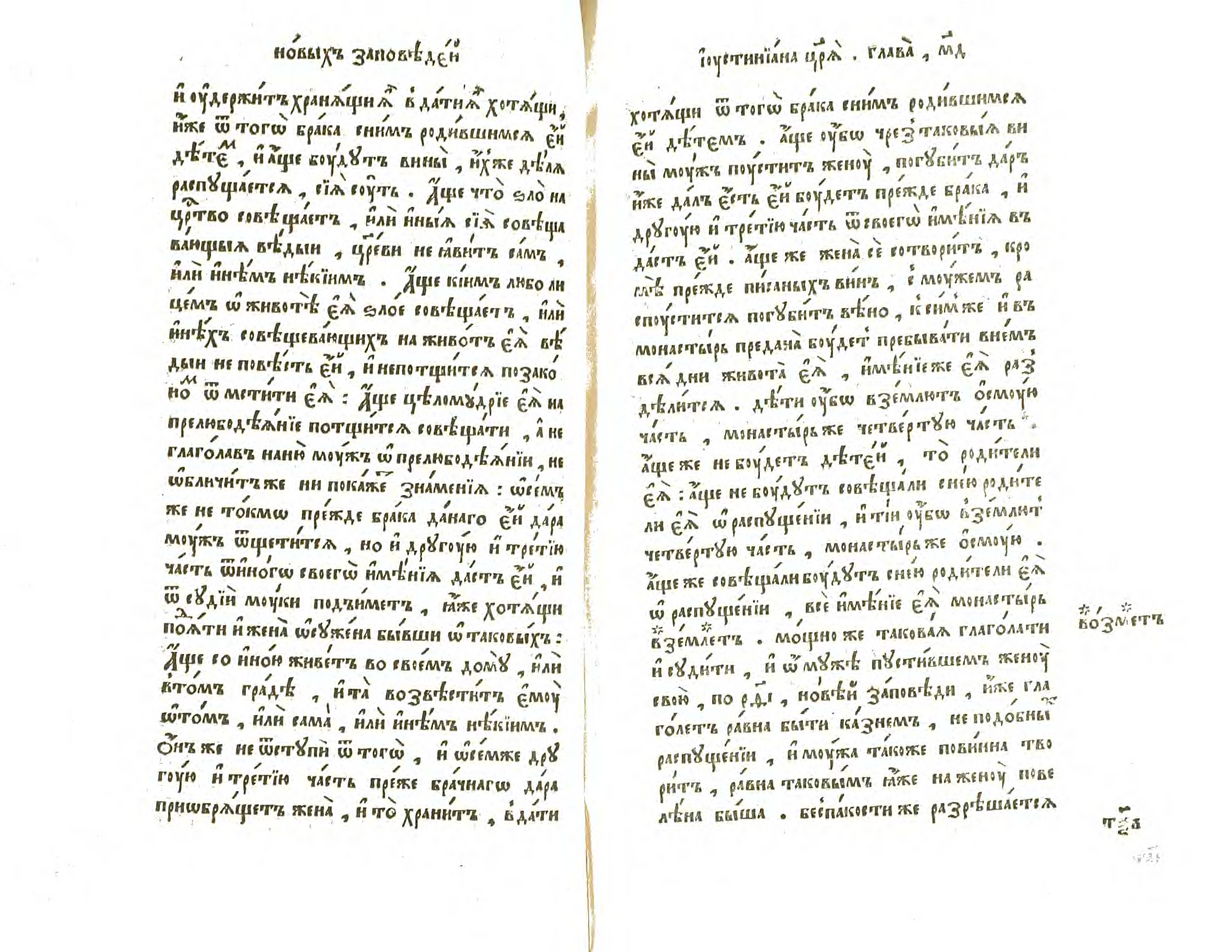 но́выхъ заповѣде́й
и҆ ᲂу҆держи́тъ храня́щи ѧ҆̀ в да́тиѧ҆̀ хотѧ́щи,
и҆́же ѿ того̀ бра́ка сни́мъ роди́вшимсѧ є҆́й
дѣ́те м, и҆ а҆́ще боу́дутъ вины̀, и҆́хже дѣ́лѧ
распꙋща́етсѧ, сїѧ̀ соу́ть. А҆́ще что̀ ѕло̀ на
црⷭ҇тво совѣща́етъ, и҆лѝ и҆ны́ѧ сїѧ̀ совѣща
ва́ющыѧ вѣ́дыи, цр҃е́ви не ꙗ҆ви́тъ са́мъ,
и҆лѝ и҆нѣ́мъ нѣ́кіимъ. А҆́ще кі́имъ любо ли
це́мъ ѡ҆ животѣ̀ є҆ѧ̀ ѕло́е совѣща́етъ, и҆лѝ
и҆нѣ́хъ совѣщева́ющихъ на живо́тъ є҆ѧ̀ вѣ́
дыи не повѣ́сть є҆́й, и҆ непотщи́тсѧ позако́
но м ѿмети́ти є҆ѧ̀: А҆́ще цѣломꙋ́дрїе є҆ѧ̀ на
прелюбодѣѧ́нїе потщи́тсѧ совѣща́ти, а҆ не
глаго́лавъ наню̀ моу́жъ ѡ҆ прелюбодѣѧ́нїи, не
ѡ҆бличи́тъ же ни пока́же знаме́нїѧ: ѡ҆се́мъ
же не то́кмѡ пре́жде бра́ка да́наго є҆́й да́ра
моу́жъ ѿщети́тсѧ, но и҆ дрꙋго́ую и҆ тре́тїю
ча́сть ѿ и҆но́гѡ своегѡ̀ и҆мѣ́нїѧ да́стъ є҆́й, и҆
ѿ сꙋді́й моу́ки под̾и́метъ, ꙗ҆́же хотѧ́щи
поѧ́ти и҆ жена̀ ѡ҆сꙋже́на бы́вши ѡ҆ таковы́хъ:
А҆́ще со и҆но́ю живе́тъ во свое́мъ до́мꙋ, и҆лѝ
вто́мъ гра́дѣ, и҆ та̀ возвѣсти́тъ є҆моу̀
ѡ҆то́мъ, и҆лѝ сама̀, и҆лѝ и҆нѣ́мъ нѣ́кіимъ.
Ѻ҆́нъ же не ѿстꙋпи́ ѿ тогѡ̀, и҆ ѡ҆се́мже дрꙋ
го́ую и҆ тре́тїю ча́сть пре́же бра́чнагѡ да́ра
приѡбрѧ́щетъ жена̀, и҆ то̀ храни́тъ, в да́ти
і҆ꙋстинїа́на цр҃ѧ̀. глава̀, м҃д
хотѧ́щи ѿ тогѡ̀ бра́ка сни́мъ роди́вшимсѧ
є҆́й дѣ́темъ. а҆́ще ᲂу҆́бѡ чрез̾ таковы́ѧ ви
ны̀ моу́жъ поу́ститъ женоу̀, погꙋби́тъ да́ръ
и҆́же да́лъ є҆́сть є҆́й боу́детъ пре́жде бра́ка, и҆
дрꙋго́ую и҆ тре́тїю ча́сть ѿ своегѡ̀ и҆мѣ́нїѧ въ
да́стъ є҆́й. а҆́ще же жена̀ сѐ сотвори́тъ, кро
мѣ̀ пре́жде пи́саныхъ ви́нъ, с моу́жемъ ра
спꙋсти́тсѧ погꙋби́тъ вѣ́но, к си́м же и҆ въ
монасты́рь предана̀ боу́детъ пребыва́ти вне́мъ
всѧ̀ дни живота̀ є҆ѧ̀, и҆мѣ́нїе же є҆ѧ̀ раз
дѣли́тсѧ. дѣ́ти ᲂу҆́бѡ взе́млютъ ѻ҆смо́ую
ча́сть, монасты́рь же четве́ртꙋю ча́сть.
а҆́ще же не боу́детъ дѣте́й, то̀ роди́тели
є҆ѧ̀: а҆́ще не боу́дутъ совѣща́ли сне́ю роди́те
ли є҆ѧ̀ ѡ҆ распꙋще́нїи, и҆ ті́и ᲂу҆́бѡ взе́млютъ
четве́ртꙋю ча́сть, монасты́рь же ѻ҆смо́ую.
а҆́ще же совѣща́ли боу́дутъ сне́ю роди́тели є҆ѧ̀
ѡ҆ распꙋще́нїи, всѐ и҆мѣ́нїе є҆ѧ̀ монасты́рь
взе́млетъ. мо́щно же такова́ѧ глаго́лати
* во́зметъ
и҆ сꙋди́ти, и҆ ѡ҆ мꙋ́жѣ пꙋсти́вшемъ женоу̀
свою̀, по но́вѣй за́повѣди, и҆́же гла
го́летъ ра́вна бы́ти ка́знемъ, не подо́бны
распꙋще́нїи, и҆ моу́жа та́коже пови́нна тво
ри́тъ, ра́вна таковы́мъ ꙗ҆́же на женоу̀ пове
лѣ́на бы́ша. бес̾па́кости же разрѣша́етсѧ